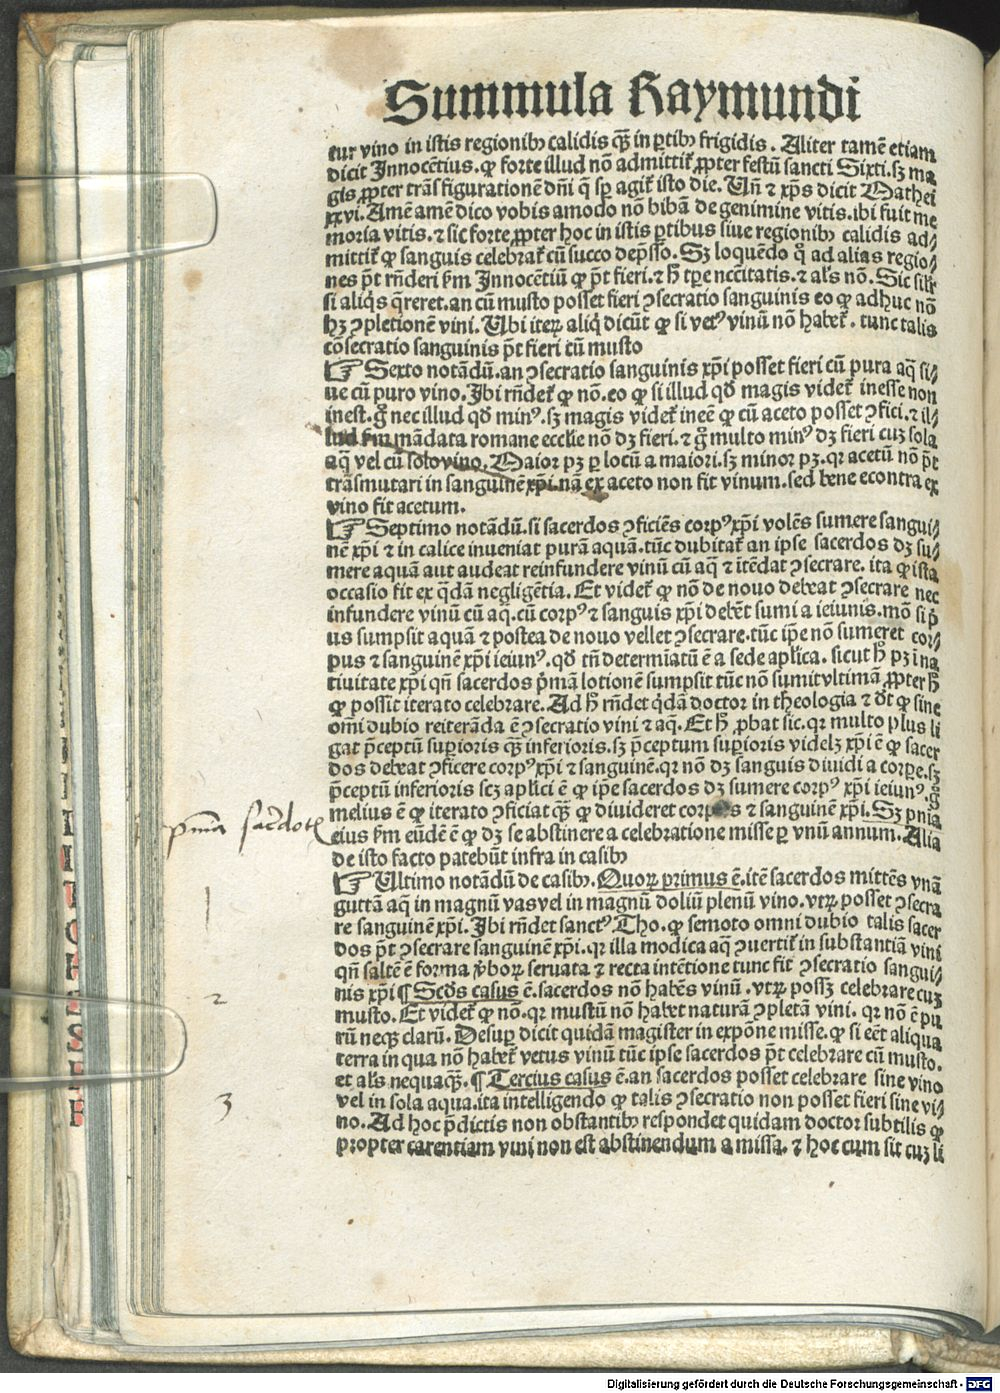 Summula Raymundi
tur vino in istis regionibꝫ calidis qꝫ̄ in ꝑtibꝫ frigidis. Aliter tamē etiam
dicit Innocētius. ꝙ forte illud nō admittit᷑ ꝓpter festū sancti Sixti. sꝫ ma
gis ꝓpter trāsfigurationē dn̄i q̄ sꝑ agit᷑ isto die. Un̄ ⁊ xp̄s dicit Mathei
xxvi. Amē amē dico vobis amodo nō bibā de genimine vitis. ibi fuit me
moria vitis. ⁊ sic forte ꝓpter hoc in istis ꝑtibus siue regionibꝫ calidis ad⸗
mittit᷑ ꝙ sanguis celebrat᷑ cū succo dep̄sso. Sꝫ loquēdo qͦ ad alias regio⸗
nes p̄t rn̄deri ẜm Innocētiū ꝙ p̄t fieri. ⁊ h̄ tꝑe ncc̄itatis. ⁊ al's nō. Sic sil'r
si aliq̇s q̄reret. an cū musto posset fieri ꝯsecratio sanguinis eo ꝙ adhuc nō
hꝫ ꝯpletionē vini. Ubi iteꝝ aliq̇ dicūt ꝙ si vetꝰ vinū nō habet᷑. tunc talis
cōsecratio sanguinis p̄t fieri cū musto
☞ Sexto notādū. an ꝯsecratio sanguinis xp̄i posset fieri cū pura aq̄ si⸗
ue cū puro vino. Ibi rn̄det᷑ ꝙ nō. eo ꝙ si illud qd̄ magis videt᷑ inesse non
inest. gͦ nec illud qd̄ minꝰ. sꝫ magis videt᷑ ineē ꝙ cū aceto posset ꝯfici. ⁊ il⸗
lud ẜm mādata romane ecclīe nō dꝫ fieri. ⁊ gͦ multo minꝰ dꝫ fieri cuꝫ sola
aq̄ vel cū solo vino. Maior pꝫ ꝑ locū a maiori. sꝫ minor pꝫ. qꝛ acetū nō p̄t
trāsmutari in sanguinē xp̄i. nā ex aceto non fit vinum. sed bene econtra ex
vino fit acetum.
☞ Septimo notādū. si sacerdos ꝯficiēs corpꝰ xp̄i volēs sumere sangui⸗
nē xp̄i ⁊ in calice inueniat purā aquā. tūc dubitat᷑ an ipse sacerdos dꝫ su⸗
mere aquam aut audeat reinfundere vinū cū aq̄ ⁊ itēdat ꝯsecrare. ita ꝙ ista
occasio fit ex q̄dā negligētia. Et videt᷑ ꝙ nō de nouo debeat ꝯsecrare nec
infundere vinū cū aq̄. cū corpꝰ ⁊ sanguis xp̄i debēt sumi a ieiunis. mō si pͥ
us sumpsit aquā ⁊ postea de nouo vellet ꝯsecrare. tūc ip̄e nō sumeret cor⸗
pus ⁊ sanguinē xp̄i ieiunꝰ. qd̄ tn̄ determīatū ē a sede aplica. sicut h̄ pꝫ ī na
tiuitate xp̄i qn̄ sacerdos pͥmā lotionē sumpsit tūc nō sumit vltimā ꝓpter h̄
ꝙ possit iterato celebrare. Ad h̄ rn̄det qͥdā doctor in theologia ⁊ dt̄ ꝙ sine
om̄i dubio reiterāda ē ꝯsecratio vini ⁊ aq̄. Et h̄ ꝓbat sic. qꝛ multo plus li
gat p̄ceptū suꝑioris qꝫ̄ inferioris. sꝫ p̄ceptum suꝑioris videlꝫ xp̄i ē ꝙ sacer
dos debeat ꝯficere corpꝰ xp̄i ⁊ sanguinē. qꝛ nō dꝫ sanguis diuidi a corꝑe. sꝫ
p̄ceptū inferioris scꝫ aplici ē ꝙ ip̄e sacerdos dꝫ sumere corpꝰ xp̄i ieiunꝰ. gͦ
melius ē ꝙ iterato ꝯficiat qꝫ̄ ꝙ diuideret corpus ⁊ sanguinē xp̄i. Sꝫ pn̄ia
eius ẜm eūdē ē ꝙ dꝫ se abstinere a celebratione misse ꝑ vnū annum. Alia
de isto facto patebūt infra in casibꝫ
☞ Ultimo notādū de casibꝫ. Quoꝝ primus ē. itē sacerdos mittēs vnā
guttā aq̄ in magnū vas vel in magnū doliū plenū vino. vtꝝ posset ꝯsecra
re sanguinē xp̄i. Ibi rn̄det sanctꝰ Tho. ꝙ semoto omni dubio talis sacer
dos p̄t ꝯsecrare sanguinē xp̄i. qꝛ illa modica aq̄ ꝯuertit᷑ in substantiā vini
qn̄ saltē ē forma v̓boꝝ seruata ⁊ recta intētione tunc fit ꝯsecratio sangui⸗
nis xp̄i ¶ Scd̄s casus ē. sacerdos nō habēs vinū. vtꝝ possꝫ celebrare cuꝫ
musto. Et videt᷑ ꝙ nō. qꝛ mustū nō habet naturā ꝯpletā vini. qꝛ nō ē pu
rū neqꝫ clarū. Desuꝑ dicit quidā magister in expōne misse. ꝙ si eēt aliqua
terra in qua nō habet᷑ vetus vinū tūc ipse sacerdos p̄t celebrare cū musto.
et al's nequaqꝫ̄. ¶ Tercius casus ē. an sacerdos posset celebrare sine vino
vel in sola aqua. ita intelligendo ꝙ talis ꝯsecratio non posset fieri sine vi⸗
no. Ad hoc p̄dictis non obstantibꝫ respondet quidam doctor subtilis ꝙ
propter carentiam vini non est abstinendum a missa. ⁊ hoc cum sit cuꝫ li
1
2
3
Digitalisierung gefördert durch die Deutsche Forschungsgemeinschaft - DFG